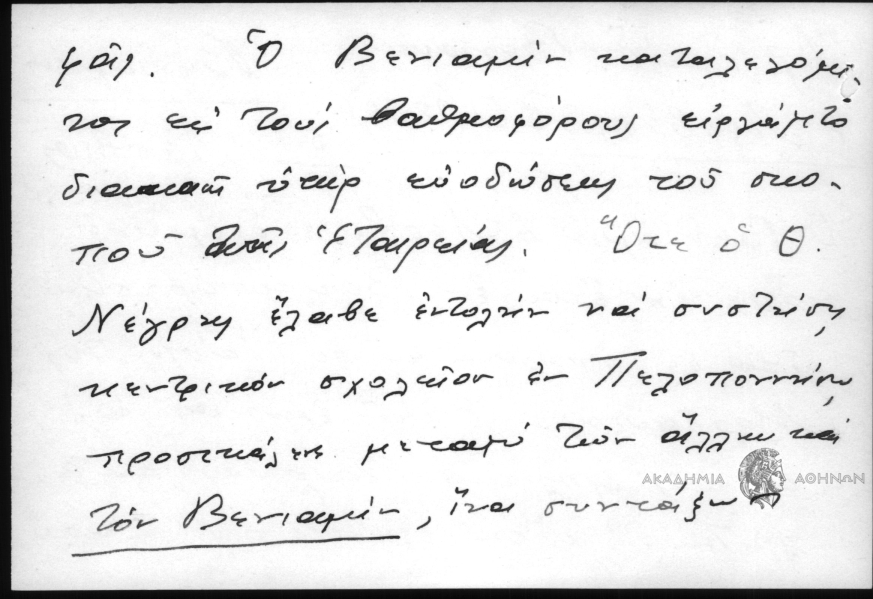 φάς. Ὁ Βενιαμὶν καταλεγόμε-
νος εἰς τοὺς βαθμοφόρους εἰργάζετο
διαρκῶς ὑπὲρ εὐοδώσεως τοῦ σκο-
ποῦ τῆς Ἑταιρείας. Ὅτε ὁ Θ.
Νέγρης ἔλαβε ἐντολὴν νὰ συστήσῃ
κεντρικὸν σχολεῖον ἐν Πελοποννήσῳ,
προσεκάλεσε μεταξὺ τῶν ἄλλων καὶ
τὸν Βενιαμὶν, ἵνα συντάξουν
ΑΚΑΔΗΜΙΑ ΑΘΗΝΩΝ